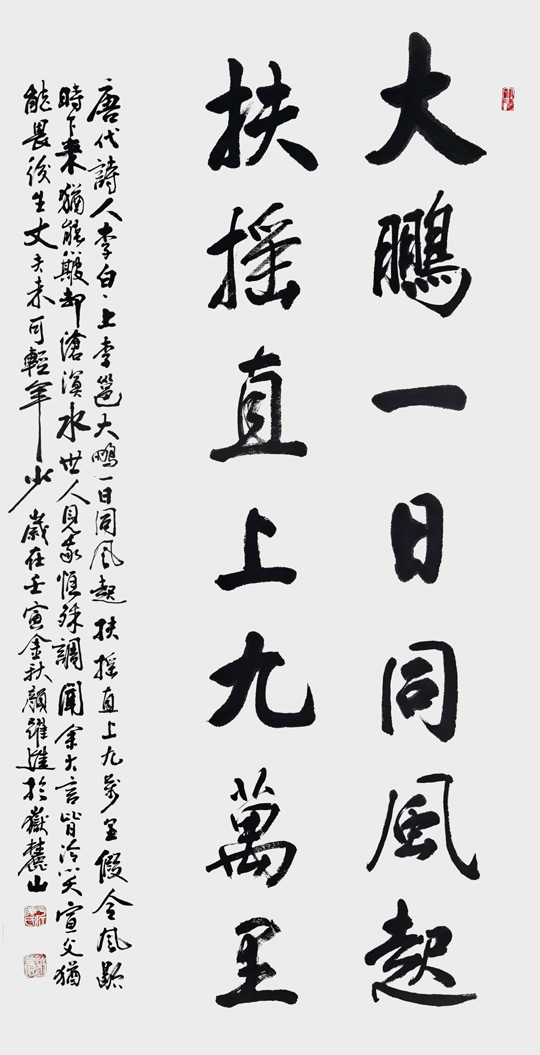 大鵬一日同風起
扶摇直上九萬里
唐代詩人李白、上李邕大鵬一日同风起扶摇直上九萬里假令风歇
時下來猶能簸却滄溟水世人見我恒殊調聞余大言皆冷笑宣父猶
能畏後生丈夫未可輕年少歲在壬寅金秋顏躍進於嶽麓山